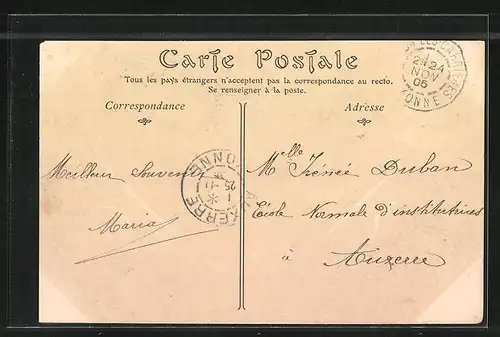 Carte Postale
Tous les pays étrangers n'acceptent pas la correspondance au recto.
Se renseigner à la poste.
Correspondance
Adresse
24
NOV
05
YONNE
AUXERRE
YONNE
25-11
Meilleur Souvenir
Maria
Melle Irénée Duban
École Normale d'institutrices
à
Auxerre